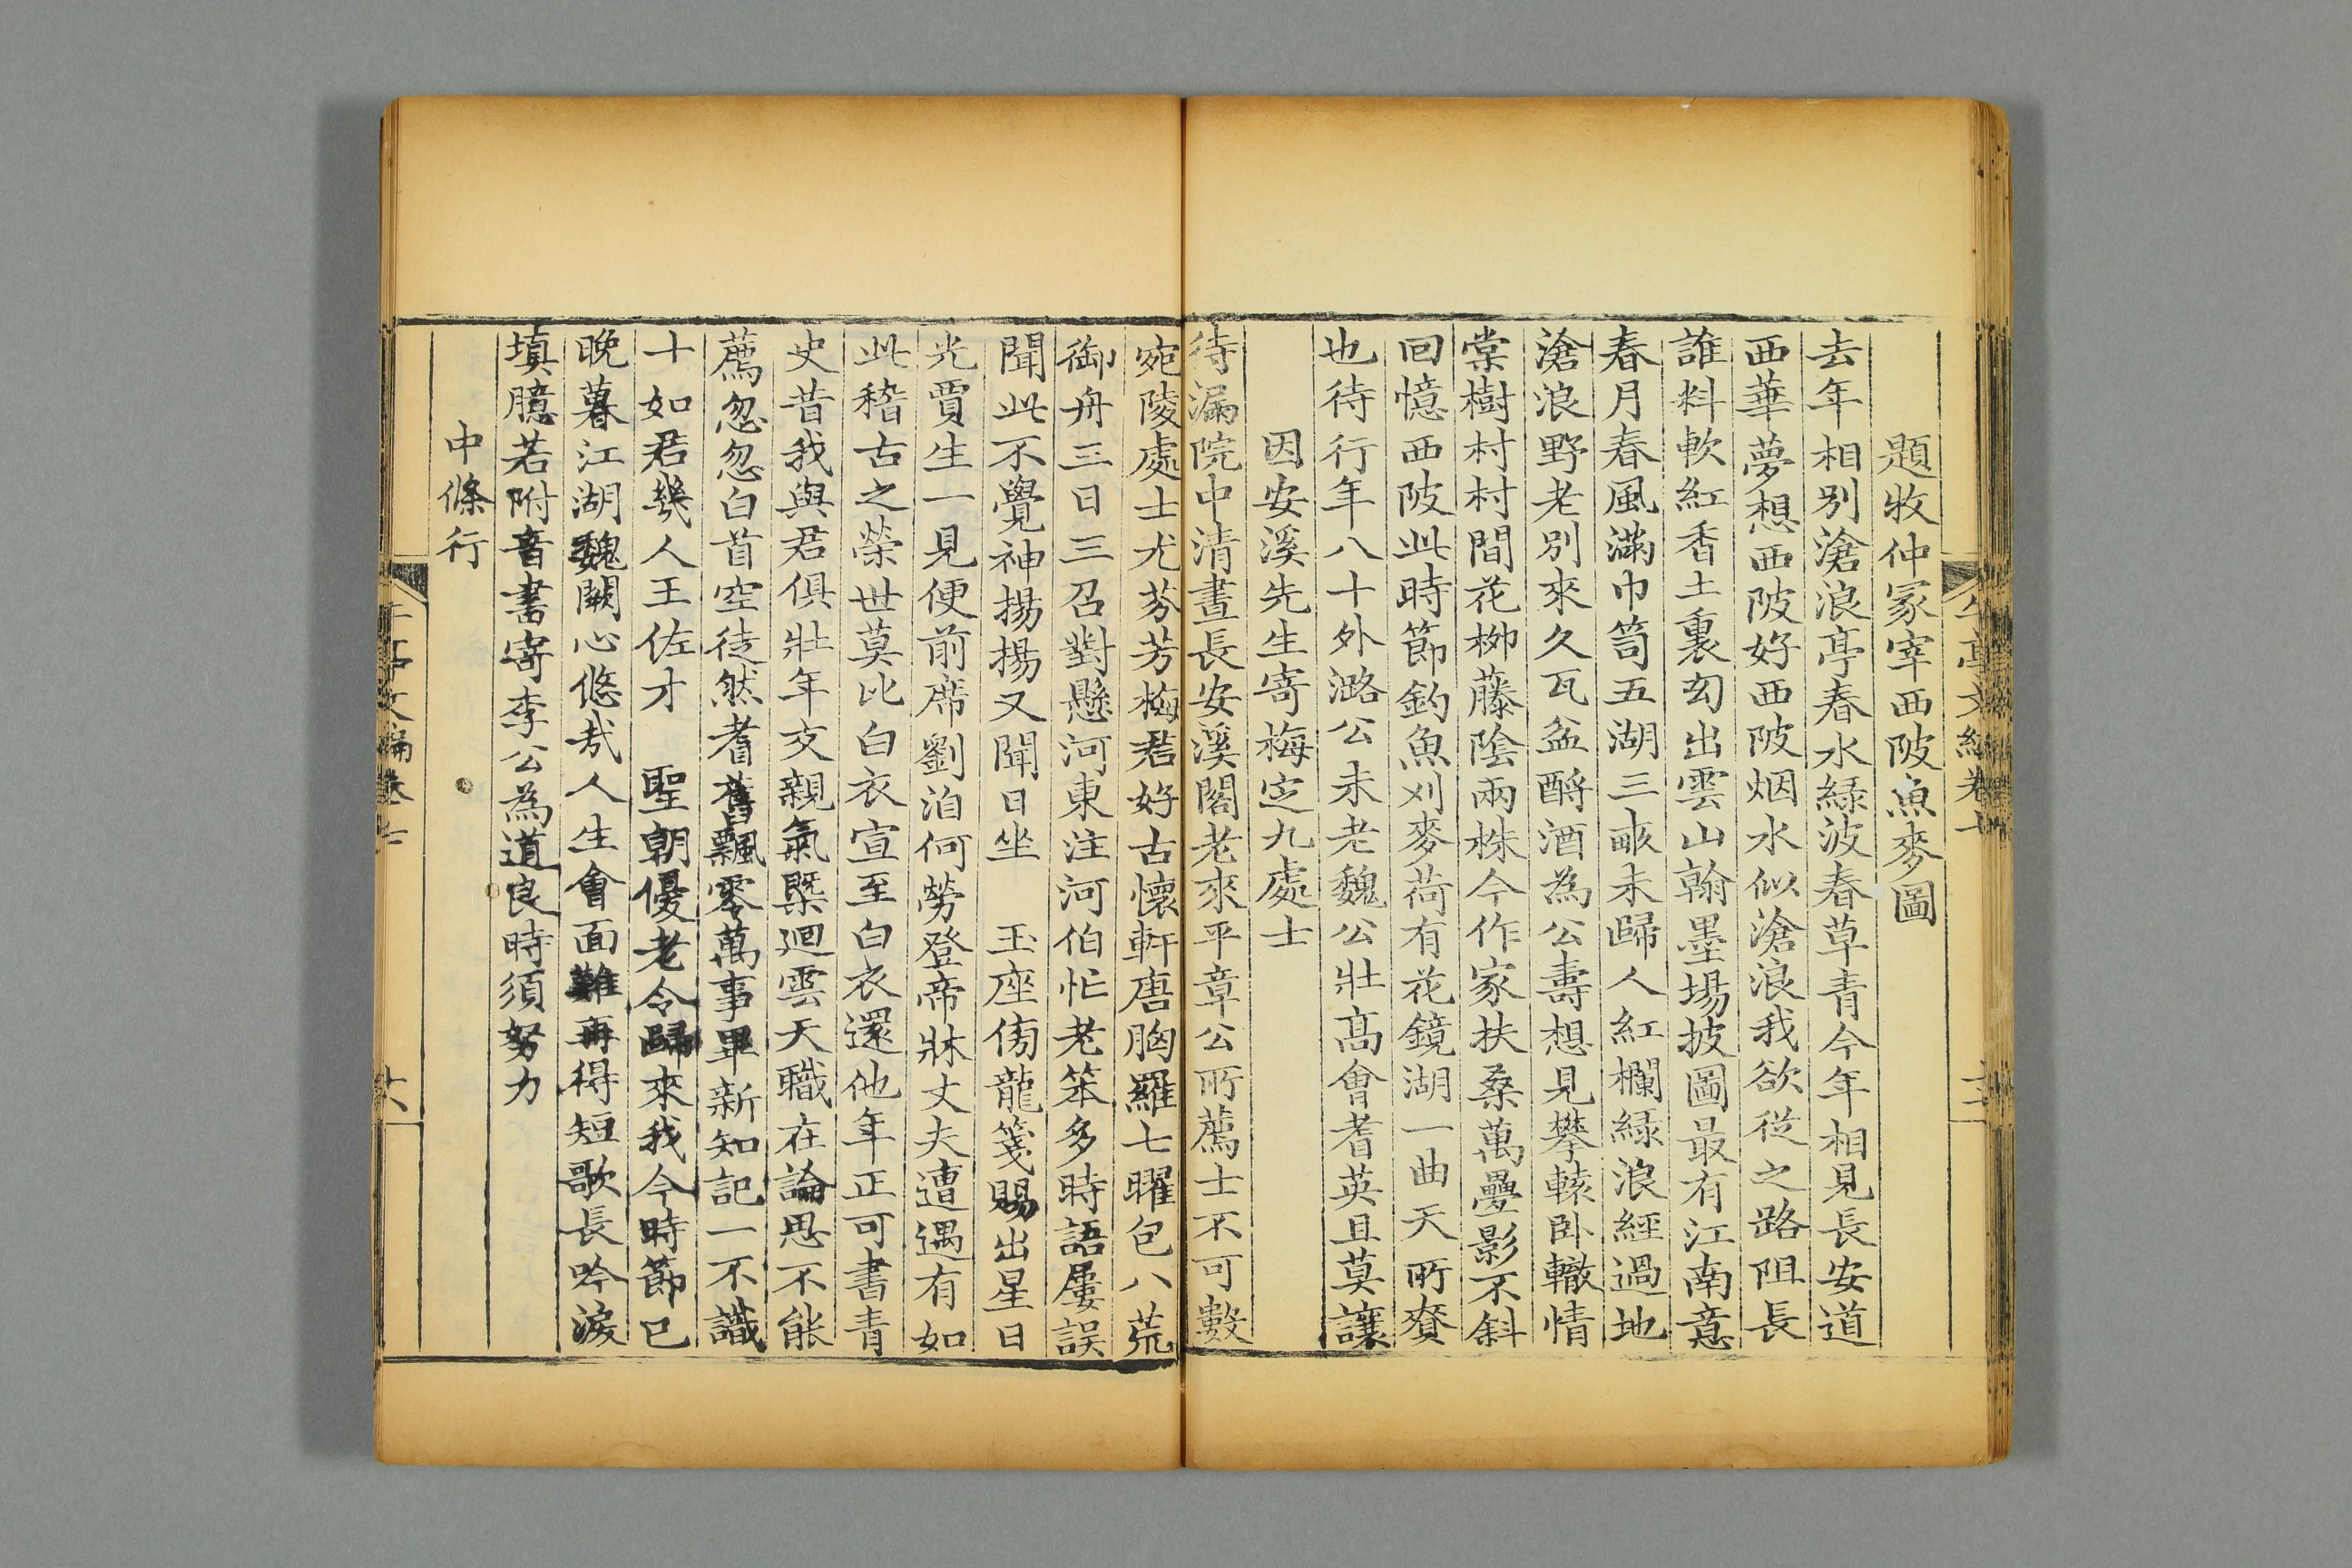 題牧仲冢宰西陂魚麥圖
去年相別滄浪亭春水緑波春草青今年相見長安道
西華夢想西陂好西陂烟水似滄浪我欲從之路阻長
誰料軟紅香土裏幻出雲山翰墨場披圖最有江南意
春月春風滿巾笥五湖三畞未歸人紅欄緑浪經過地
滄浪野老別來久瓦盆酹酒為公壽想見攀轅卧轍情
棠樹村村間花栁藤陰兩株今作家扶桑萬疊影不斜
回憶西陂此時節釣魚刈麥荷有花鏡湖一曲天所賚
也待行年八十外潞公未老魏公壯高會耆英且莫讓
因安溪先生寄梅定九處士
待漏院中清晝長安溪閣老來平章公所薦士不可數
宛陵處士尤芬芳梅君好古懷軒唐胸羅七曜包八荒
御舟三日三召對懸河東注河伯忙老笨多時語屢誤
聞此不覺神揚揚又聞日坐　玉座傍龍箋賜出星日
光賈生一見便前席劉洎何勞登帝牀丈夫遭遇有如
此稽古之榮世莫比白衣宣至白衣還他年正可書青
史昔我與君俱壯年交親氣槩迴雲天職在論思不能
薦忽忽白首空徒然耆舊飄零萬事畢新知記一不識
十如君幾人王佐才　聖朝優老令歸來我今時節已
晚暮江湖魏闕心悠哉人生會面難再得短歌長吟淚
填臆若附音書寄李公為道良時須努力
中條行
午亭文編卷七
十六